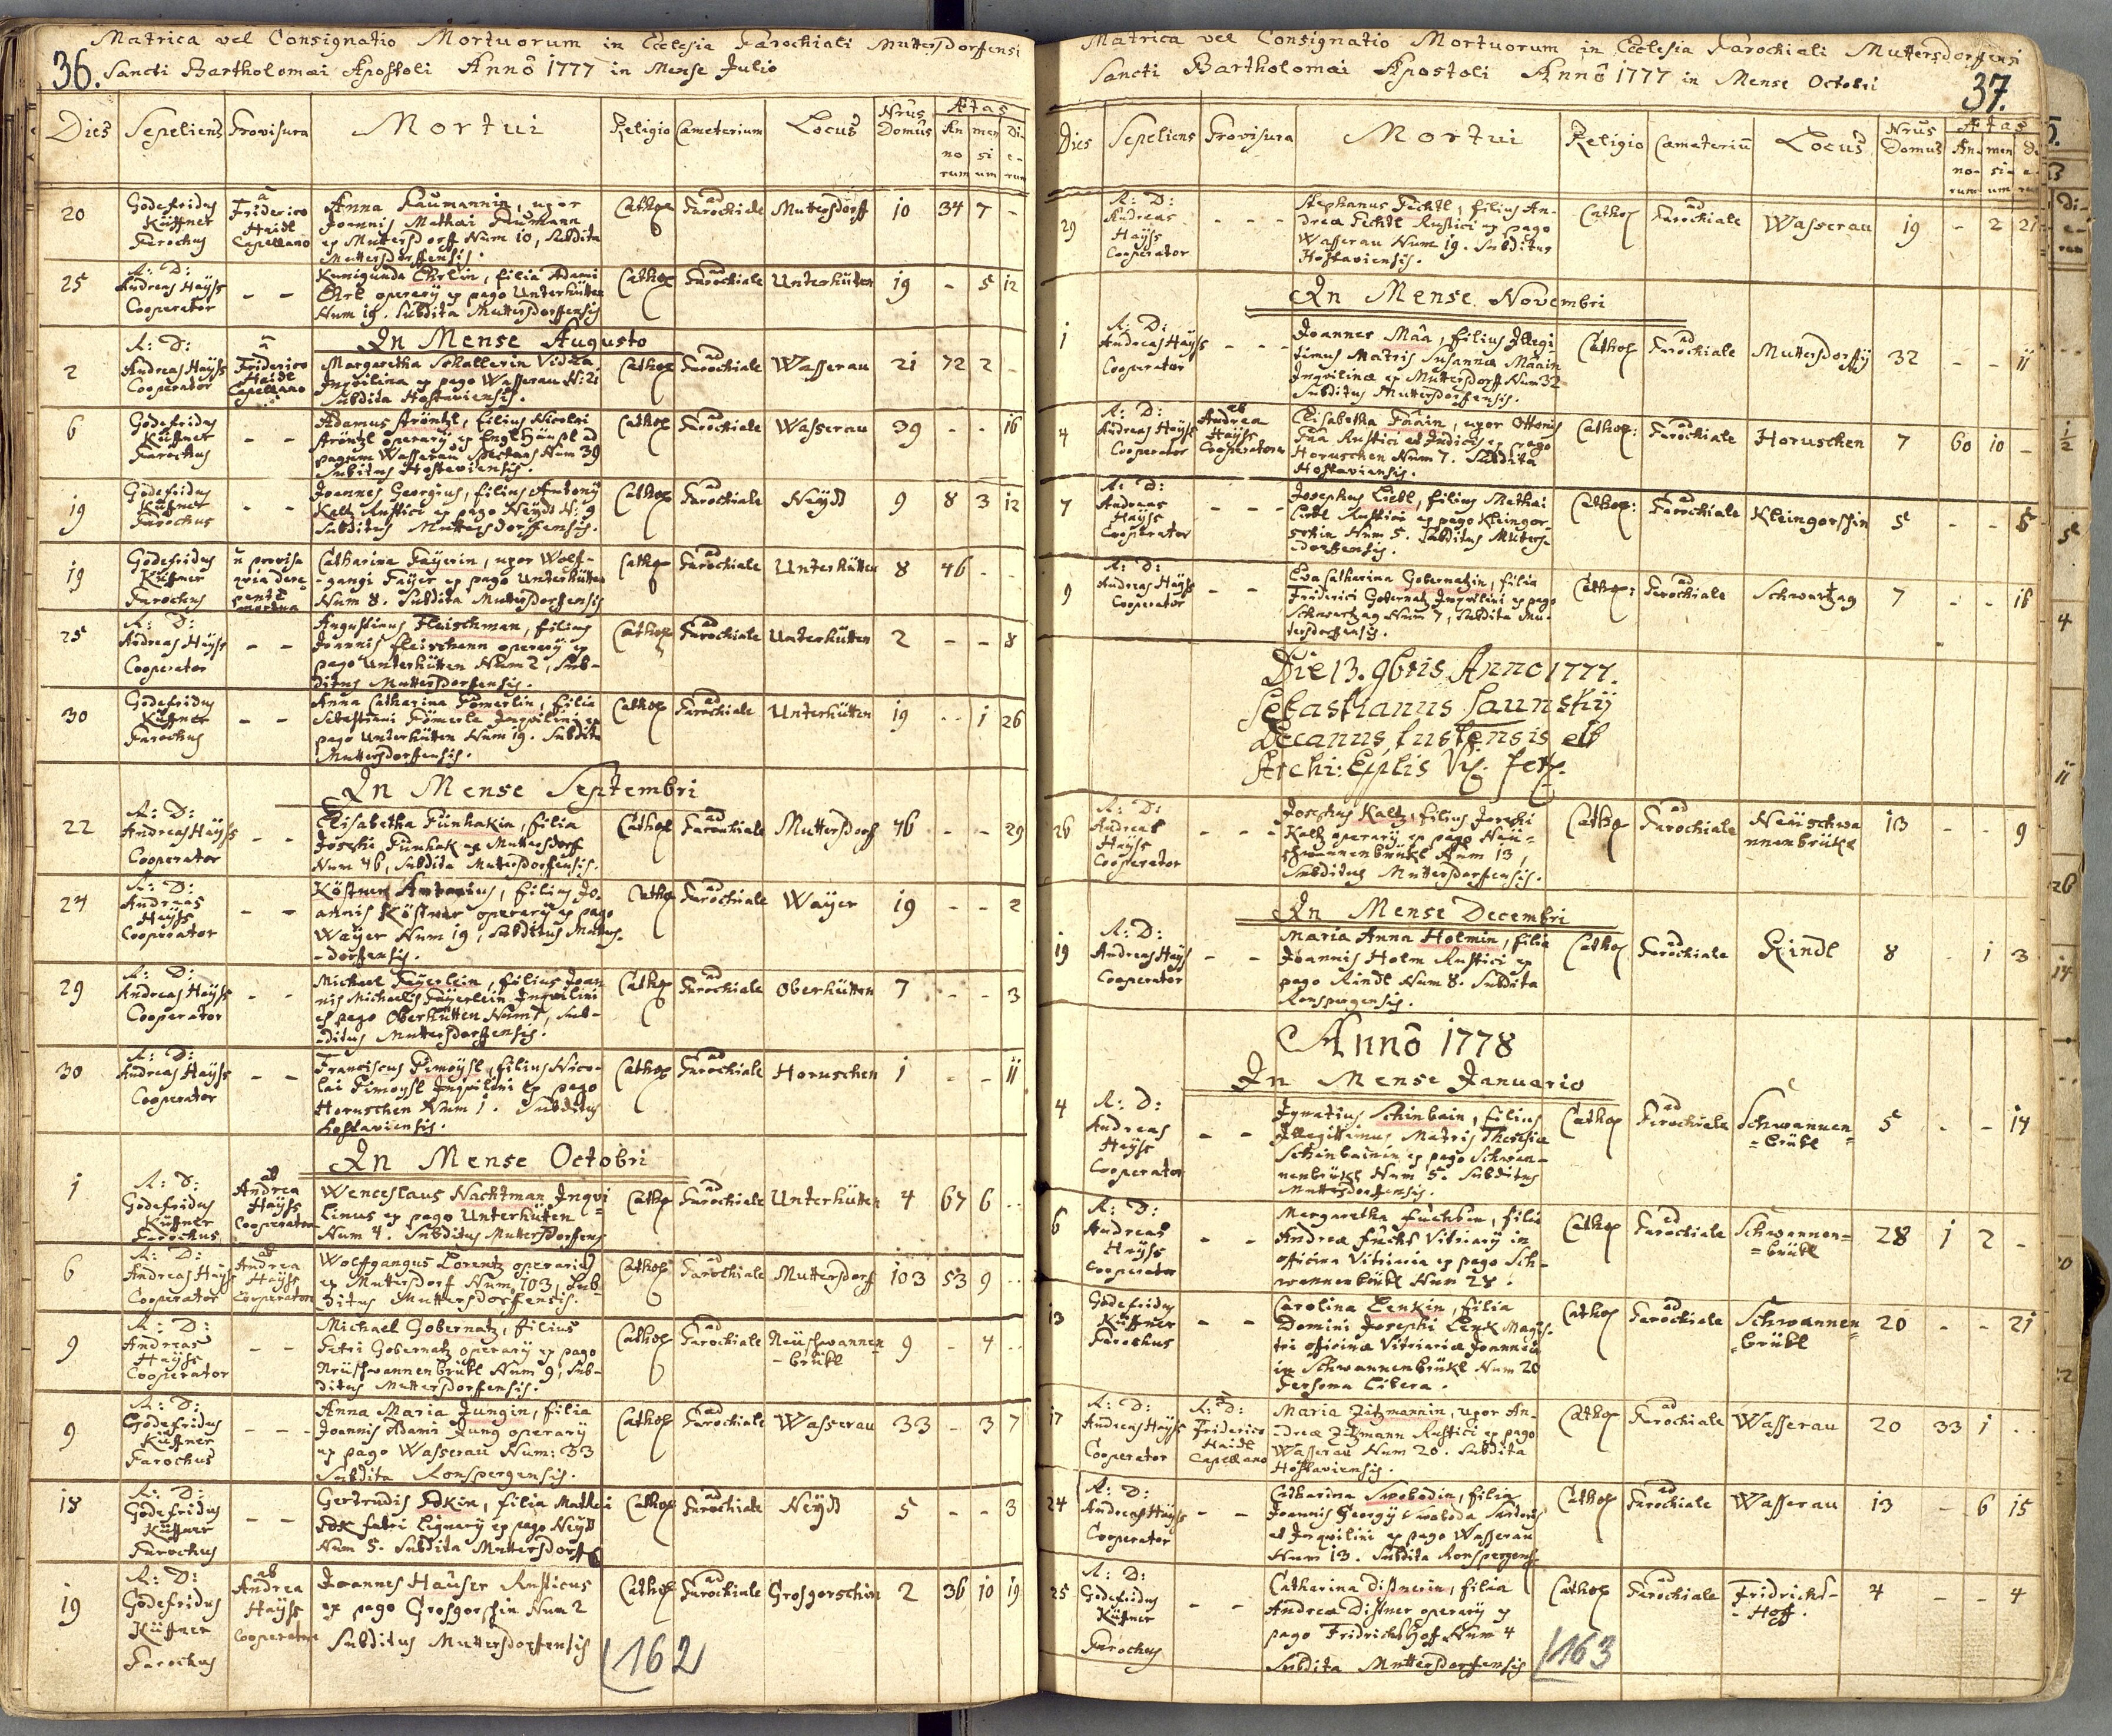 Matrica vel Consignatio Mortuorum in Ecclesia Parochiali Muttersdorffensi
36. Sancti Bartholomæi Apostoli Annô 1777 in Mense Julio
Dies Sepeliens Provisura Mortui Religio Cæmeterium Locus Nrus Domûs Ætas
An no rum men si um Di e rum
20 Godefridus Küffner Parochus
â Friderico Haidl Capellano
Anna Paumannin, uxor
Joannis Mathæi Paumann
ex Muttersdorff Num 10, Subdita
Muttersdorffensis.
Cathol ad Parochiale Muttersdorff 10 34 7 -
25 R: D: Andreas Haÿss Cooperator - -
Kunigunda Ehrlin, filia Adami
Ehrl operarÿ ex pago Unterhütten
Num 19. Subdita Muttersdorffensis
Cathol ad Parochiale Unterhütten 19 - 5 12
In Mense Augusto
2 R: D: Andreas Haÿss Cooperator
â Friderico Haidl Capellano
Margaretha Schallerin Vidua
Inquilina ex pago Wasserau N: 21
Subdita Hostaviensis.
Cathol ad Parochiale Wasserau 21 72 2 -
6 Godefridus Küffner Parochus - -
Adamus Ströntzl, filius Nicolai
Ströntzl operarÿ ex
pagum Wasserau Spectans Num 39
Subditus Hostaviensis.
Cathol ad Parochiale Wasserau 39 - - 16
19 Godefridus Küffner Parochus - -
Joannes Georgius, filius Antonÿ
Kaltz Rustici ex pago Neÿd N: 9
Subditus Muttersdorffensis.
Cathol ad Parochiale Neÿd 9 8 3 12
19 Godefridus Küffner Parochus
n provisa quia derepente mortua
Catharina Paÿerin, uxor Wolf-
-gangi Paÿer ex pago Unterhütten
Num 8. Subdita Muttersdorffensis
Cathol ad Parochiale Unterhütten 8 46 - -
25 R: D: Andreas Haÿss Cooperator - -
Augustinus Fleischman, filius
Joannis Fleischman operarÿ ex
pago Unterhütten Num 2, Sub-
ditus Muttersdorffensis.
Cathol ad Parochiale Unterhütten 2 - - 8
30 Godefridus Küffner Parochus - -
Anna Catharina Pömerlin, filia
Sebastiani Pömerle Inquilini ex
pago Unterhütten Num 19. Subdita
Muttersdorffensis.
Cathol ad Parochiale Unterhütten 19 - - 1 26
In Mense Septembri
22 R: D: Andreas Haÿss Cooperator - -
Elisabetha Funhakin, filia
Josephi Funhak ex Muttersdorf
Num 46, Subdita Muttersdorffensis.
Cathol ad Parochiale Muttersdorff 46 - - 29
24 R: D: Andreas Haÿss Cooperator - -
Köstner Antonius, filius Jo-
annis Köstner operarÿ ex pago
Waÿer Num 19, Subditus Mutters-
-dorffensis.
Cathol ad Parochiale Waÿer 19 - - 2
29 R: D: Andreas Haÿss Cooperator - -
Michael Paÿerlein, filius Joan
nis Michaelis Paÿerlein Inquilini
ex pago Oberhütten Num 7, Sub-
-ditus Muttersdorffensis.
Cathol ad Parochiale Oberhütten 7 - - 3
30 R: D: Andreas Haÿss Cooperator - -
Franciscus Pimoÿsl, filius Nico-
lai Pimoysl Inquilini ex pago
Horuschen Num 1. Subditus
Hostaviensis.
Cathol ad Parochiale Horuschen 1 - - 11
In Mense Octobri
1 R: D: Godefridus Küffner Parochus
ab Andrea Haÿss Cooperatore
Wenceslaus Nachtman Inqui-
linus ex pago Unterhütten
Num 4. Subditus Muttersdorffens
Cathol ad Parochiale Unterhütten 4 67 6 - -
6 R: D: Andreas Haÿss Cooperator
ab Andrea Haÿss Cooperatore
Wolfgangus Lorentz operarius
ex Muttersdorf Num. 103, Sub-
ditus Muttersdorffensis.
Cathol ad Parochiale Muttersdorf 103 53 9 - -
9 R: D: Andreas Haÿss Cooperator - -
Michael Gobernatz, filius
Petri Gobernatz operarÿ ex pago
Neüschwannenbrükl Num 9, Sub-
ditus Muttersdorffensis.
Cathol ad Parochiale Neüschwannen-
-brükl 9 - 4 - -
9 R: D: Godefridus Küffner Parochus - - -
Anna Maria Jungin, filia
Joannis Adami Jung operarÿ
ex pago Wasserau Num: 33
Subdita Ronspergensis.
Cathol ad Parochiale Wasserau 33 - 3 7
18 R: D: Godefridus Küffner Parochus - -
Gertrudis Pökin, filia Mathæi
Pök fabri Lignarÿ ex pago Neÿd
Num 5. Subdita Muttersdorff
Cathol ad Parochiale Neÿd 5 - - 3
19 R: D: Godefridus Küffner Parochus
ab Andrea Haÿss Cooperatore
Joannes Hauser Rusticus
ex pago Grosgorschin Num 2
Subditus Muttersdorffensis
Cathol ad Parochiale Grosgorschin 2 36 10 19
162
Matrica vel Consignatio Mortuorum in Ecclesia Parochiali Muttersdorffensi
Sancti Bartholomæi Apostoli Annô 1777 in Mense Octobri 37.
Dies Sepeliens Provisura Mortui Religio Cæmeteriũ Locus Nrus Domus Ætas
An no rum men si um Di e rum
29 R: D: Andreas Haÿss Cooperator - - -
Stephanus Fechtl, filius An-
dreæ Fechtl Rustici ex pago
Wasserau Num 19. Subditus
Hostaviensis.
Cathol ad Parochiale Wasserau 19 - 2 21
In Mense Novembri
1 R: D: Andreas Haÿss Cooperator - - -
Joannes Mâa, filius Illegi
timus Matris Susannæ Mâain
Inquilinæ ex Muttersdorff Num 32
Subditus Muttersdorffensis.
Cathol ad Parochiale Muttersdorffÿ 32 - - 11
4 R: D: Andreas Haÿss Cooperator
ab Andrea Haÿss Cooperatore
Elisabetha Pâain, uxor Ottonis
Pâa Rustici et Judicis ex pago
Horuschen Num 7. Subdita
Hostaviensis.
Cathol: ad Parochiale Horuschen 7 60 10 -
7 R: D: Andreas Haÿss Cooperator - - -
Josephus Liebl, filius Mathæi
Liebl Rustici ex pago Kleingor-
schin Num 5. Subditus Mutters-
-dorffensis.
Cathol: ad Parochiale Kleingorschin 5 - - 5
9 R: D: Andreas Haÿss Cooperator - -
Eva Catharina Gobernatzin, filia
Friderici Gobernatz Inquilini ex pago
Schwartzag Num 7, Subdita Mut-
tersdorffensis.
Cathol: ad Parochiale Schwartzag 7 - - 18
Die 13. 9bris Anno 1777.
Sebastianus Launskÿ
Decanus tustensis
26 R: D: Andreas Haÿss Cooperator - - -
Josephus Kaltz, filius Josephi
Kaltz operarÿ ex pago Neü-
schwannenbrükl Num 13,
Subditus Muttersdorffensis.
Cathol ad Parochiale Neüschwa
nnenbrükl 13 - - 9
In Mense Decembri
19 R: D: Andreas Haÿss Cooperator - -
Maria Anna Holmin, filia
Joannis Holm Rustici ex
pago Rindl Num 8. Subdita
Ronspergensis.
Cathol ad Parochiale Rindl 8 - 1 3
Annô 1778
In Mense Januario
4 R: D: Andreas Haÿss Cooperator - -
Ignatius Schinbain, filius
Illegittimus Matris Theresiæ
Schinbainin ex pago Schwan-
nenbrükl Num 5. Subditus
Muttersdorffensis.
Cathol ad Parochiale Schwannen-
=brükl 5 - - 14
6 R: D: Andreas Haÿss Cooperator - -
Margaretha Fuchsin, filia
Andreæ Fuchs Vitriarÿ in
officina Vitriaria ex pago Sch-
wannenbrükl Num 28.
Cathol ad Parochiale Schwannen=
=brükl 28 1 2 -
13 Godefridus Küffner Parochus - -
Carolina Lenkin, filia
Domini Josephi Lenk Magis-
tri officinæ Vitriariæ
in Schwannenbrükl Num 20
Persona Libera.
Cathol ad Parochiale Schwannen=
=brükl 20 - - 21
17 R: D: Andreas Haÿss Cooperator
R: â D: Friderico Haidl Capellano
Maria Zitzmannin, uxor An-
-dreæ Zitzmann Rustici ex pago
Wasserau Num 20. Subdita
Hostaviensis.
Cathol ad Parochiale Wasserau 20 33 1 - -
24 R: D: Andreas Haÿss Cooperator - -
Catharina Swobodin, filia
Joannis Georgÿ Swoboda Sartoris
et Inquilini ex pago Wasserau
Num 13. Subdita Ronspergens.
Cathol ad Parochiale Wasserau 13 - 6 15
25 R: D: Godefridus Küffner Parochus - -
Catharina Distnerin, filia
Andreæ Distner operarÿ ex
pago Fridrichshof Num 4
Subdita Muttersdorffensis
Cathol ad Parochiale Fridrichs-
-Hoff. 4 - - 4
163